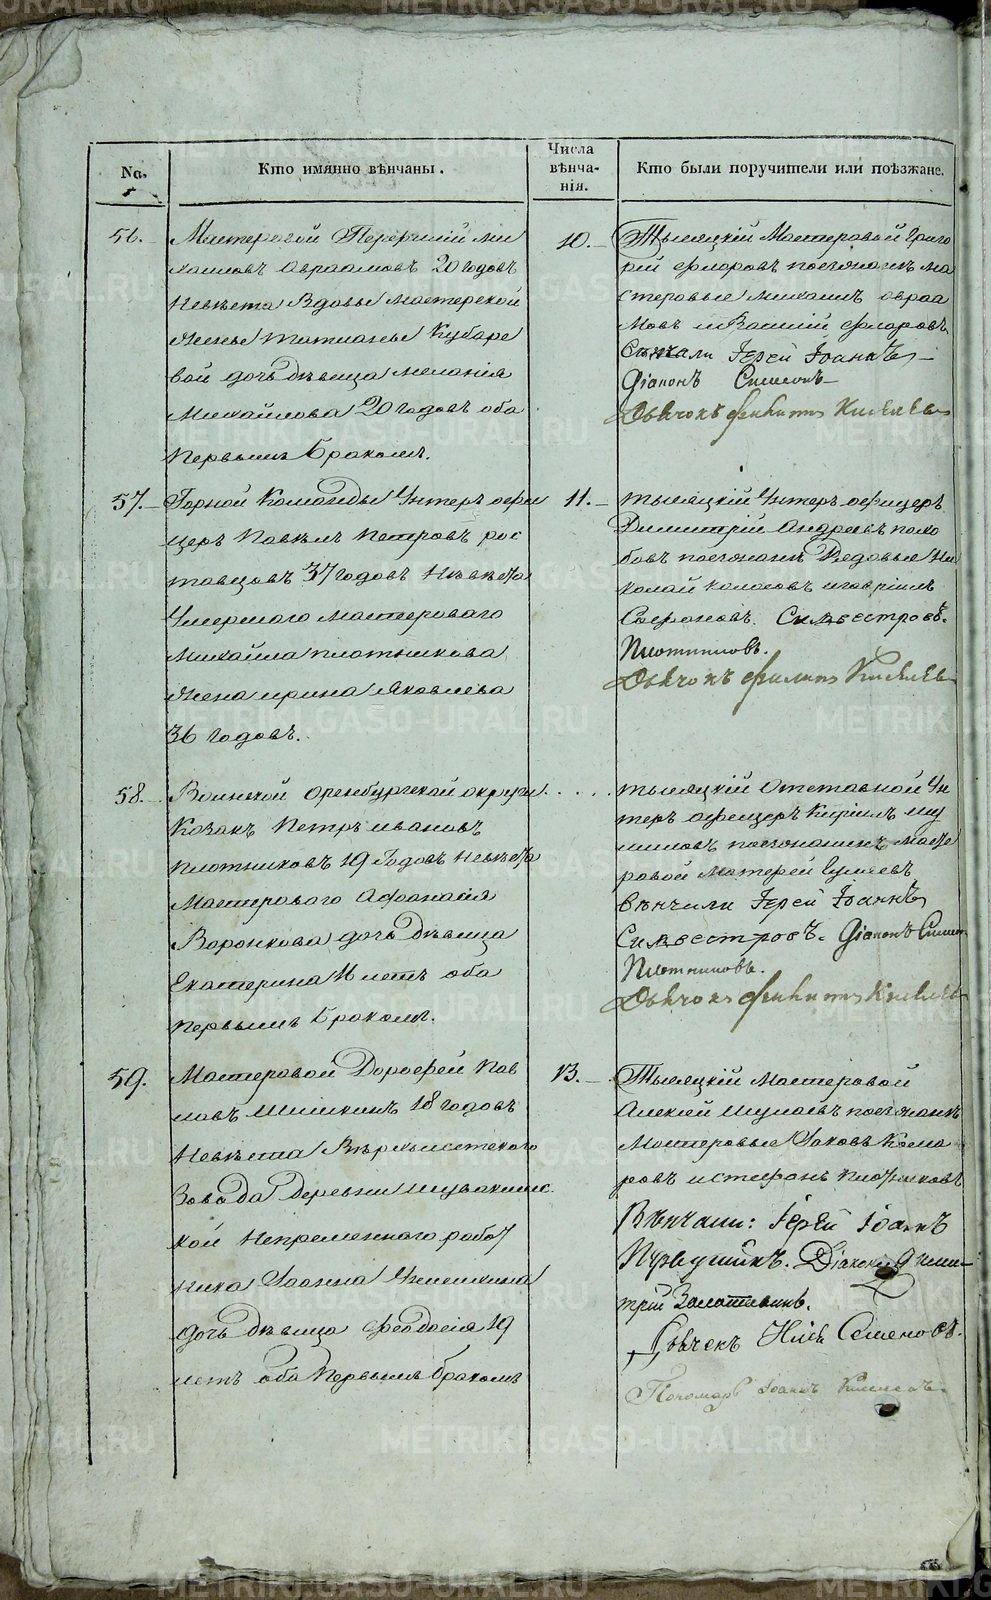 No.
Кто имянно вѣнчаны.
Числа
вѣнча-
нія.
Кто были поручители или поѣзжане.
56.
Мастеровой
Авраамовъ 20 годовъ
Невѣста Вдовы Мастерской
жены Татианы Кубаре
вой дочь дѣвица Меланія
Михайлова 20 годовъ оба
Первымъ Бракомъ.
10.
Тысяцкій Мастеровой Григо
рій Фларовъ поезжане ма
стеровые Михаилъ Авраа
мовъ и Василій Фларовъ
Вѣнчали Іерей Іоаннъ
Діаконъ Симеонъ
Дьячокъ Филипъ Киселевъ
57.
Горной Команды Унтеръ офи
церъ Павелъ Петровъ рос
тавцовъ 37 годовъ Невѣста
Умершаго мастероваго
Михайла плотникова
Жена ирина Яковлева
36 годовъ.
11.
тысяцкій Унтеръ офицеръ
Димитрій Андреевъ
поезжане Редовые Ни
колай Колосовъ игавріилъ
Сафоновъ. Силвестровъ.
Плотниковъ.
Дьячокъ Филипъ Киселевъ
58.
Воинской Оренбургской округи
Козакъ Петръ ивановъ
плотниковъ 19 Годовъ Невѣста
Мастерового Афонасія
Воронкова дочь дѣвица
Екатерина летъ оба
первымъ Бракомъ.
. . . .
тысяцкій Отставной Ун
теръ офицеръ Кирилъ шу
миловъ поезжанинъ масте
ровой Гуляевъ
Вѣнчали Іерей Іоаннъ
Силвестровъ. Діаконъ Симеон
Плотниковъ.
Дьячокъ Филипъ Киселевъ
59.
Мастеровой Дорофей Пав
ловъ Шишкинъ 18 годовъ
Невѣста Верхъисетского
Завода Деревни Шувакишс
кой Непременнаго работ
ника Іоанна
дочь дѣвица Феодосія 19
летъ оба Первымъ бракомъ
13.
Тысяцкій Мастеровой
Алексей Шумаевъ поезжане
Мастеровые Іаковъ Кома
ровъ истефанъ
Вѣнчали: Іерей Іоаннъ
Діаконъ Дими-
трій
Дьячекъ Илія Семеновъ.
Пономарь Іоаннъ
METRIKI.GASO-URAL.RU